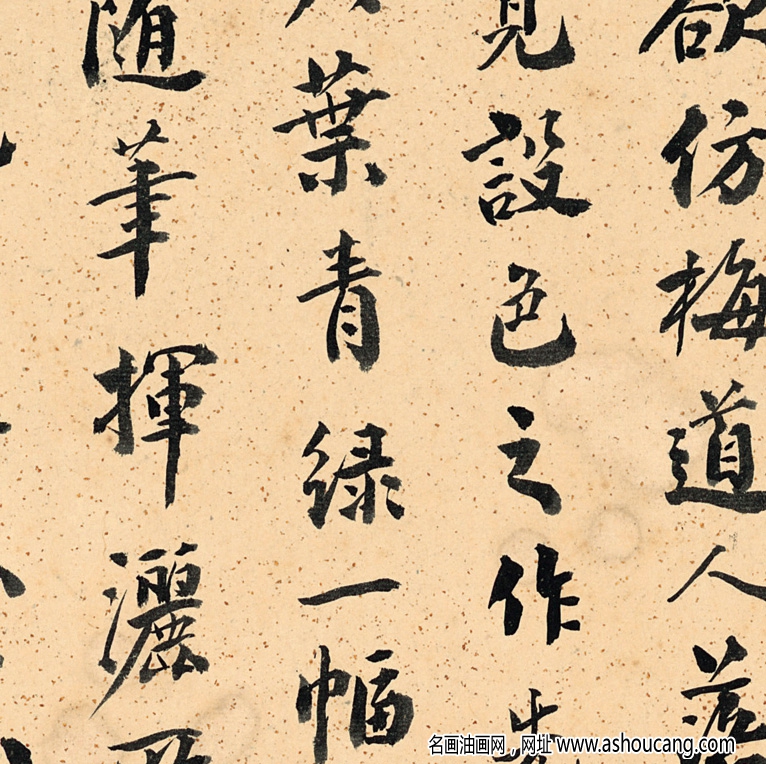 欲仿梅道人
見設色之作
葉青綠一幅
隨筆揮灑
名画油画网，网址 www.ashoucang.com